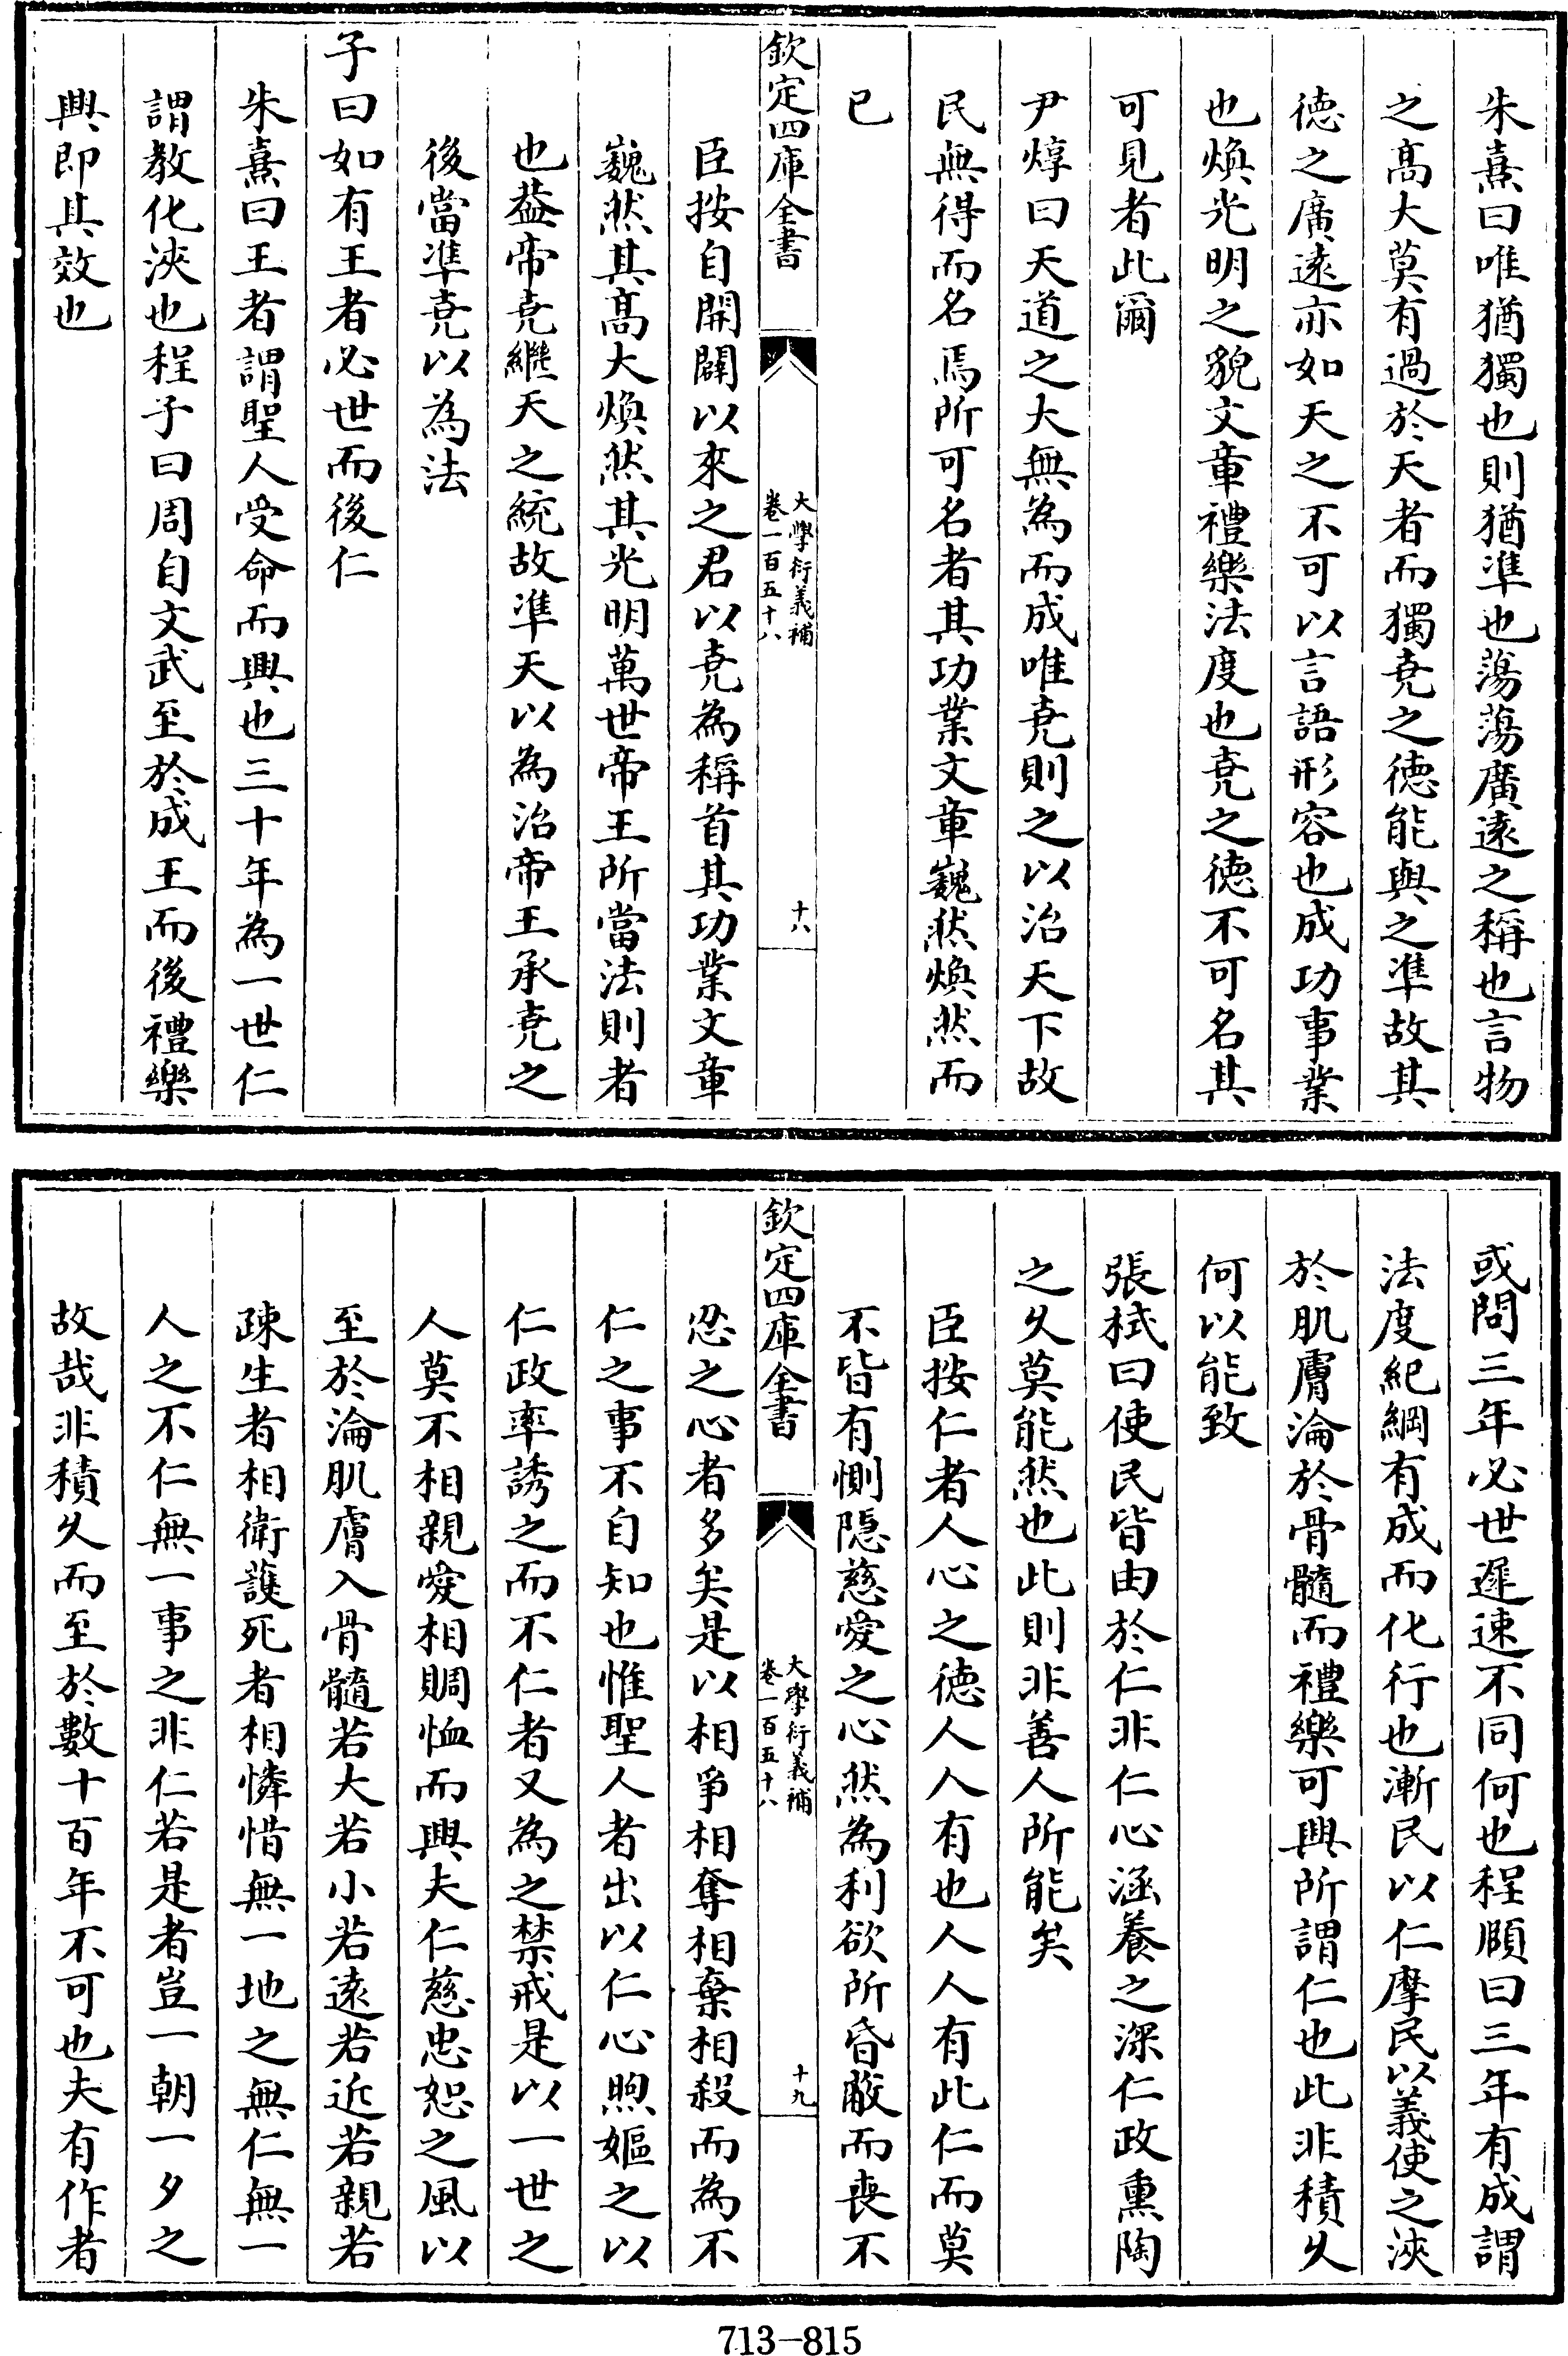 朱熹曰唯猶獨也則猶準也蕩蕩廣遠之稱也言物
之髙大莫有過於天者而獨堯之徳能與之準故其
徳之廣遠亦如天之不可以言語形容也成功事業
也煥光明之貌文章禮樂法度也堯之徳不可名其
可見者此爾
尹焞曰天道之大無為而成唯堯則之以治天下故
民無得而名焉所可名者其功業文章巍然煥然而
已
欽定四庫全書
大學衍義補
卷一百五十八
十八
臣按自開闢以來之君以堯為稱首其功業文章
巍然其髙大煥然其光明萬世帝王所當法則者
也葢帝堯繼天之統故準天以為治帝王承堯之
後當準堯以為法
子曰如有王者必世而後仁
朱熹曰王者謂聖人受命而興也三十年為一世仁
謂教化浹也程子曰周自文武至於成王而後禮樂
興即其效也
或問三年必世遲速不同何也程頤曰三年有成謂
法度紀綱有成而化行也漸民以仁摩民以義使之浹
於肌膚淪於骨髓而禮樂可興所謂仁也此非積久
何以能致
張栻曰使民皆由於仁非仁心涵養之深仁政熏陶
之久莫能然也此則非善人所能矣
臣按仁者人心之徳人人有也人人有此仁而莫
不皆有惻隱慈愛之心然為利欲所昏蔽而喪不
欽定四庫全書
大學衍義補
卷一百五十八
十九
忍之心者多矣是以相爭相奪相棄相殺而為不
仁之事不自知也惟聖人者出以仁心煦嫗之以
仁政率誘之而不仁者又為之禁戒是以一世之
人莫不相親愛相賙恤而興夫仁慈忠恕之風以
至於淪肌膚入骨髓若大若小若逺若近若親若
疎生者相衛護死者相憐惜無一地之無仁無一
人之不仁無一事之非仁若是者豈一朝一夕之
故哉非積久而至於數十百年不可也夫有作者
713-815